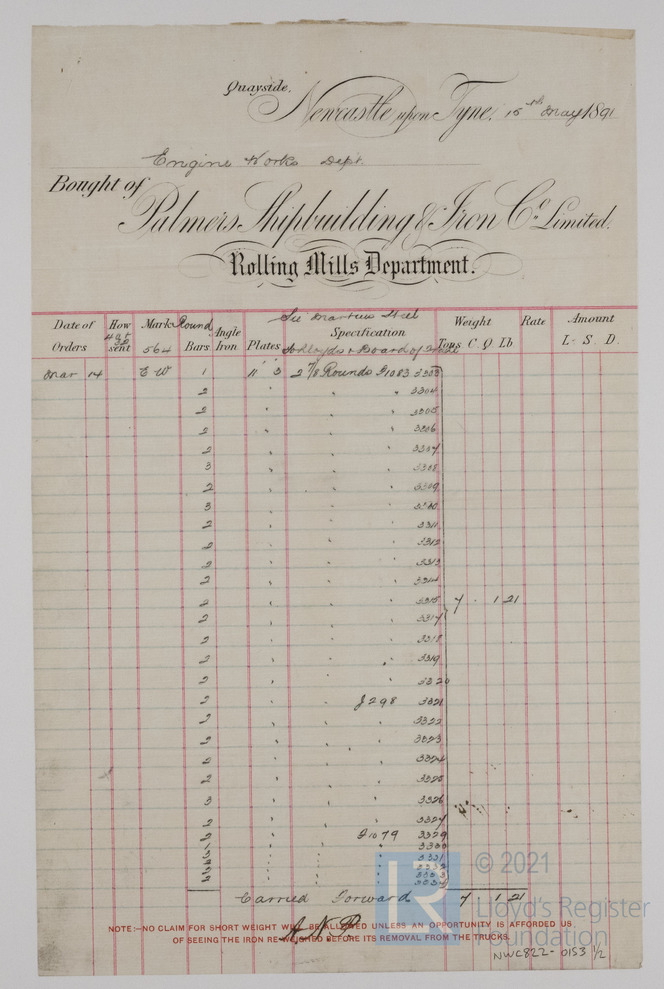 Quayside,
Newcastle upon Tyne, 15th May 1891
Engine Works Dept.
Bought of
Palmers Shipbuilding & Iron Co. Limited.
Rolling Mills Department.
Date of Orders How sent Mark Round Bars Angle Iron Plates Specification Weight Tons C. Q. Lb. Rate Amount L. S. D.
564 Lloyds & Board of Trade
Mar 14 E W 1 11' 3" 2 7/8 Rounds 3303
2 " " 3304
2 " " 3305
2 " " 3306
2 " " 3307
3 " " 3308
2 " " 3309
3 " " 3310
2 " " 3311
2 " " 3312
2 " " 3313
2 " " 3314
2 " " 3315 7 . 1 21
2 " " 3317
2 " " 3318
2 " " 3319
2 " " 3320
2 " J298 3321
2 " " 3322
2 " " 3323
2 " " 3324
2 " " 3325
3 " " 3326
2 " " 3327
2 " 1079 3329
3330
3331
3332
3333
3334
Carried Forward 7 1 21
NOTE:—NO CLAIM FOR SHORT WEIGHT WILL BE ALLOWED UNLESS AN OPPORTUNITY IS AFFORDED US
OF SEEING THE IRON RE-WEIGHED BEFORE ITS REMOVAL FROM THE TRUCKS.
© 2021
Lloyd's Register
Foundation
NWC822-0153 1/2